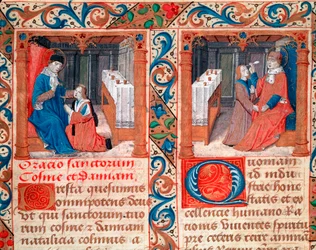 Oracio sanctorum
Cosme et Damiani.
Presta quesumus
omnipotens deus
ut qui sanctorum tuo
rum cosme et damiani
natalicia colimus a
Quoniam
ad indu
strie hone
statis et ex
cellencie humano
spiritu
ceteris